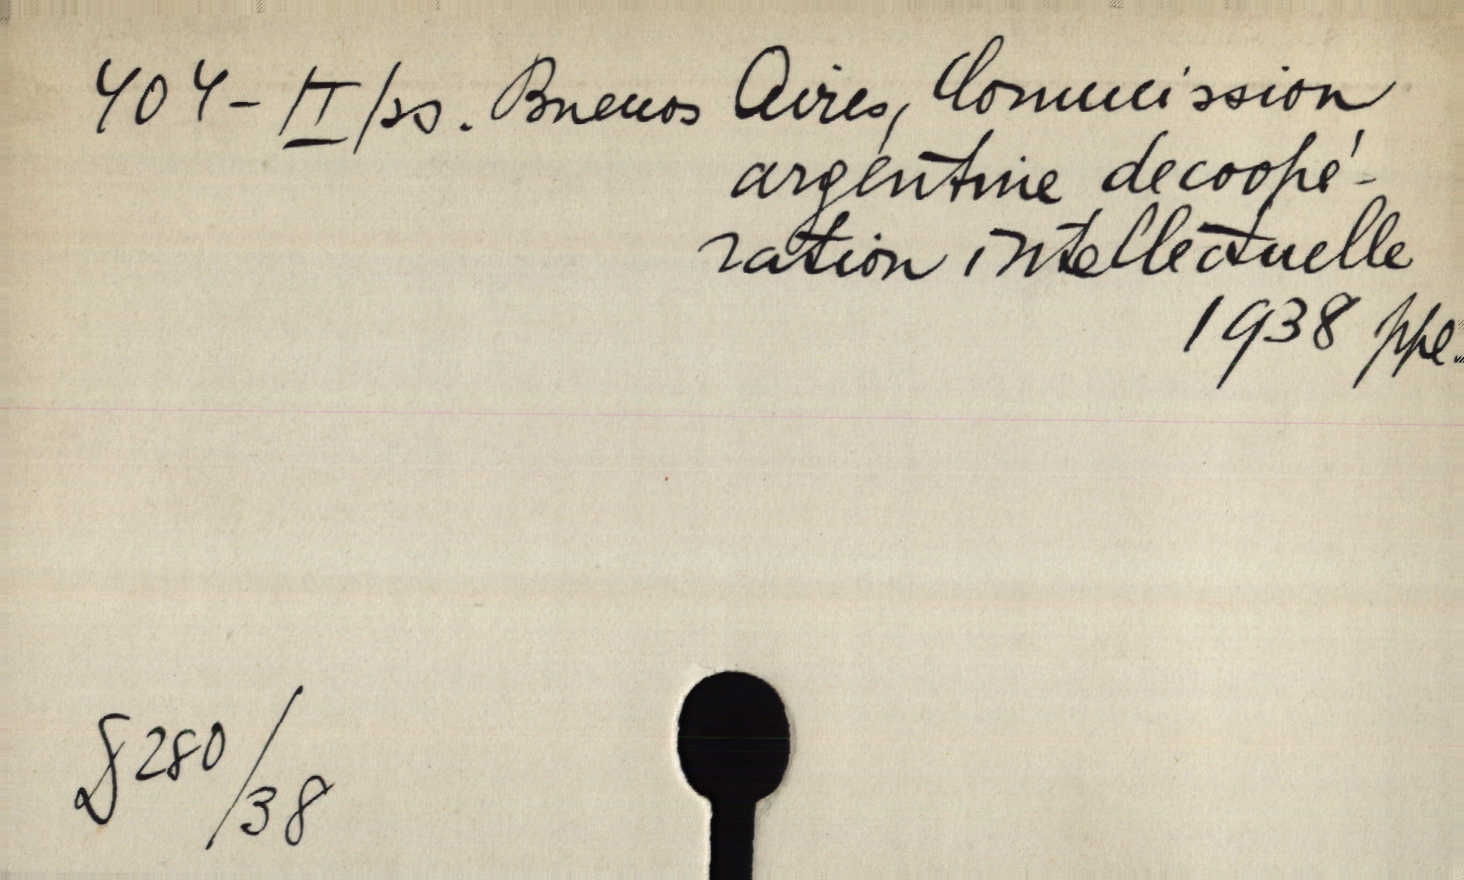 404-II/ss. Buenos Aires, Commission
argentine decoopé-
ration intellectuelle
1938 ppe.
§280/38